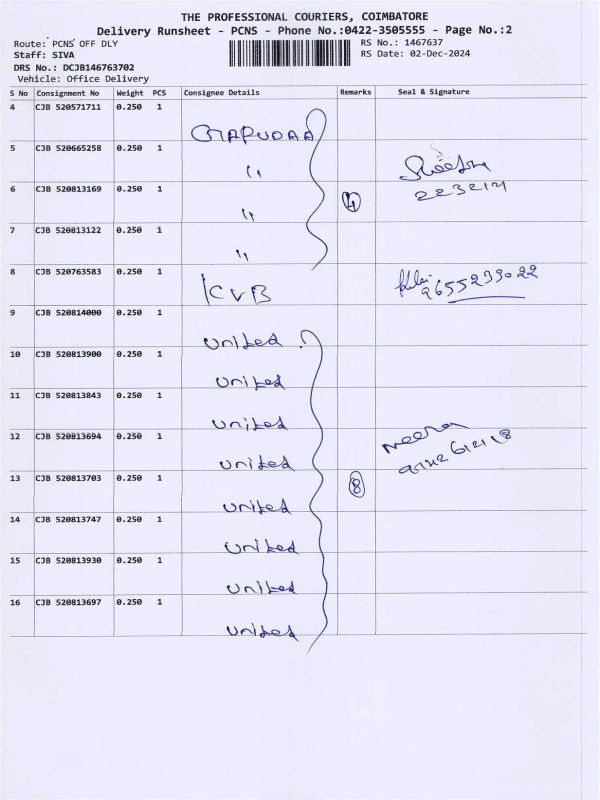 THE PROFESSIONAL COURIERS, COIMBATORE
Delivery Runsheet - PCNS - Phone No.:0422-3505555 - Page No.:2
Route: PCNS OFF DLY RS No.: 1467637
Staff: SIVA RS Date: 02-Dec-2024
DRS No.: DCJB146763702
Vehicle: Office Delivery
S No Consignment No Weight PCS Consignee Details Remarks Seal & Signature
4 CJB 520571711 0.250 1
5 CJB 520665258 0.250 1 "
6 CJB 520813169 0.250 1 " 4
7 CJB 520813122 0.250 1 "
8 CJB 520763583 0.250 1 KVB 9655239022
9 CJB 520814000 0.250 1 United
10 CJB 520813900 0.250 1 United
11 CJB 520813843 0.250 1 United
12 CJB 520813694 0.250 1 United Meena
13 CJB 520813703 0.250 1 United 8
14 CJB 520813747 0.250 1 United
15 CJB 520813930 0.250 1 United
16 CJB 520813697 0.250 1 United